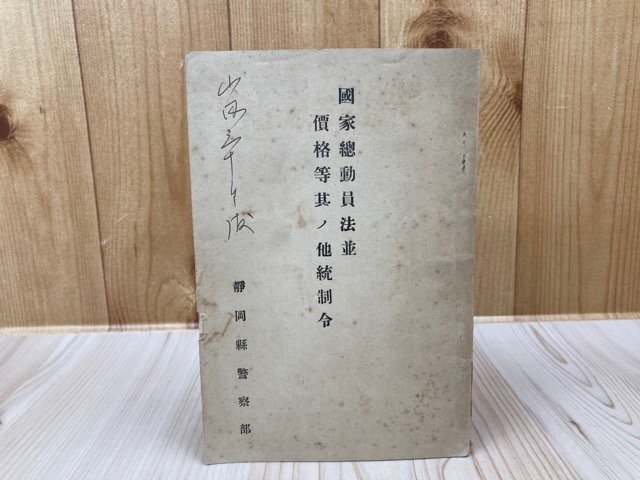 國家總動員法並
價格等其ノ他統制令
靜岡縣警察部